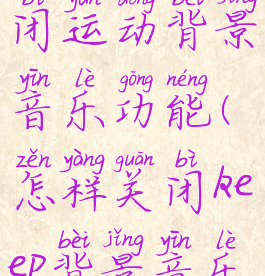 闭运动背景
yīn lè gōng néng
音乐功能(
zěn yàng guān bì
怎样关闭ke
bèi jǐng yīn lè
ep背景音乐